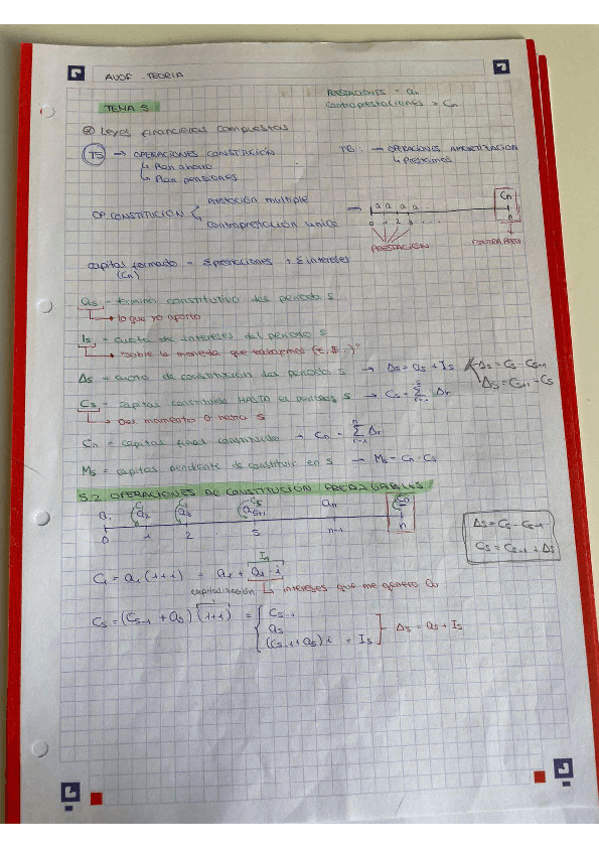 AVOF - TEORIA
PRESTACIONES = an
contraprestaciones = Cn
TEMA 5
Leyes financieras compuestas
T5 → OPERACIONES CONSTITUCIÓN
↳ Plan ahorro
↳ Plan pensiones
T6: → OPERACIONES AMORTIZACION
↳ Préstamos
OP. CONSTITUCIÓN
prestación multiple
contraprestación unica
a a a a
0 1 2 3 ...
Cn
n
PRESTACIÓN
CONTRAPREST
Capital formado = Σprestaciones + Σ intereses
(Cn)
as = termino constitutivo del periodo s.
→ lo que yo aporto
Is = cuota de intereses del periodo s
→ "sobre la moneda que trabajemos (€, $...)"
Δs = cuota de constitución del periodo s → Δs = as + Is
Δs = Cs - Cs-1
Δs = Cs+1 - Cs
Cs = capital constituido HASTA el periodo s → Cs = Σ Δr
→ Del momento 0 hasta s
Cn = capital final constituido → Cn = Σ Δr
Ms = capital pendiente de constituir en s → Ms = Cn - Cs
5.2 OPERACIONES DE CONSTITUCIÓN PREPAGABLES
a1 C1 a2 C2 a3 Cs as+1 an Cn
0 1 2 s n-1 n
Δs = Cs - Cs-1
Cs = Cs-1 + Δs
I1
C1 = a1 (1+i) = a1 + a1 · i
capitalización ↳ intereses que me genera a1
Cs = (Cs-1 + as) (1+i) = { Cs-1
as
(Cs-1 + as) i = Is
Δs = as + Is